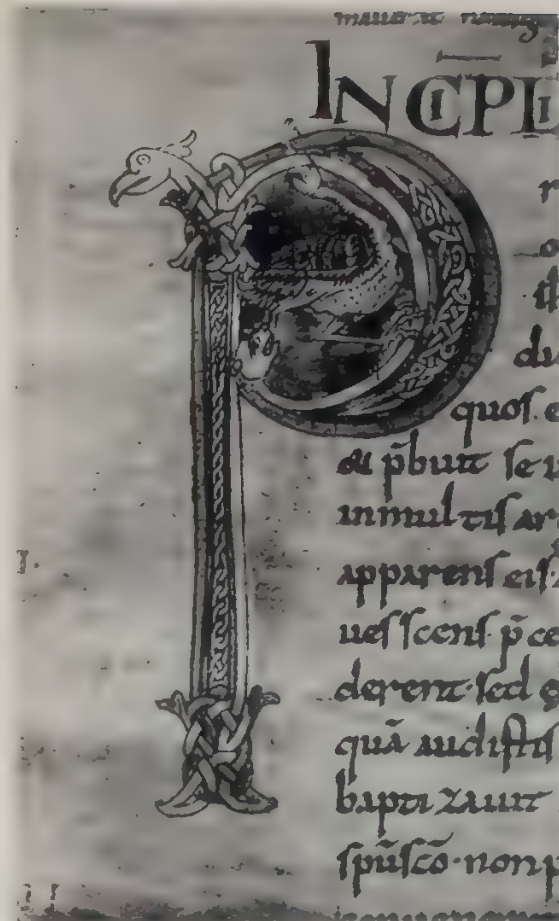 INC̄IPLI
o
th
du
quos. e
& p̄buit se u
inmultis ar
apparens eis.
uescens p̄ce
derent. sed e
quā audistis
baptizauit
sp̄uscō. non p